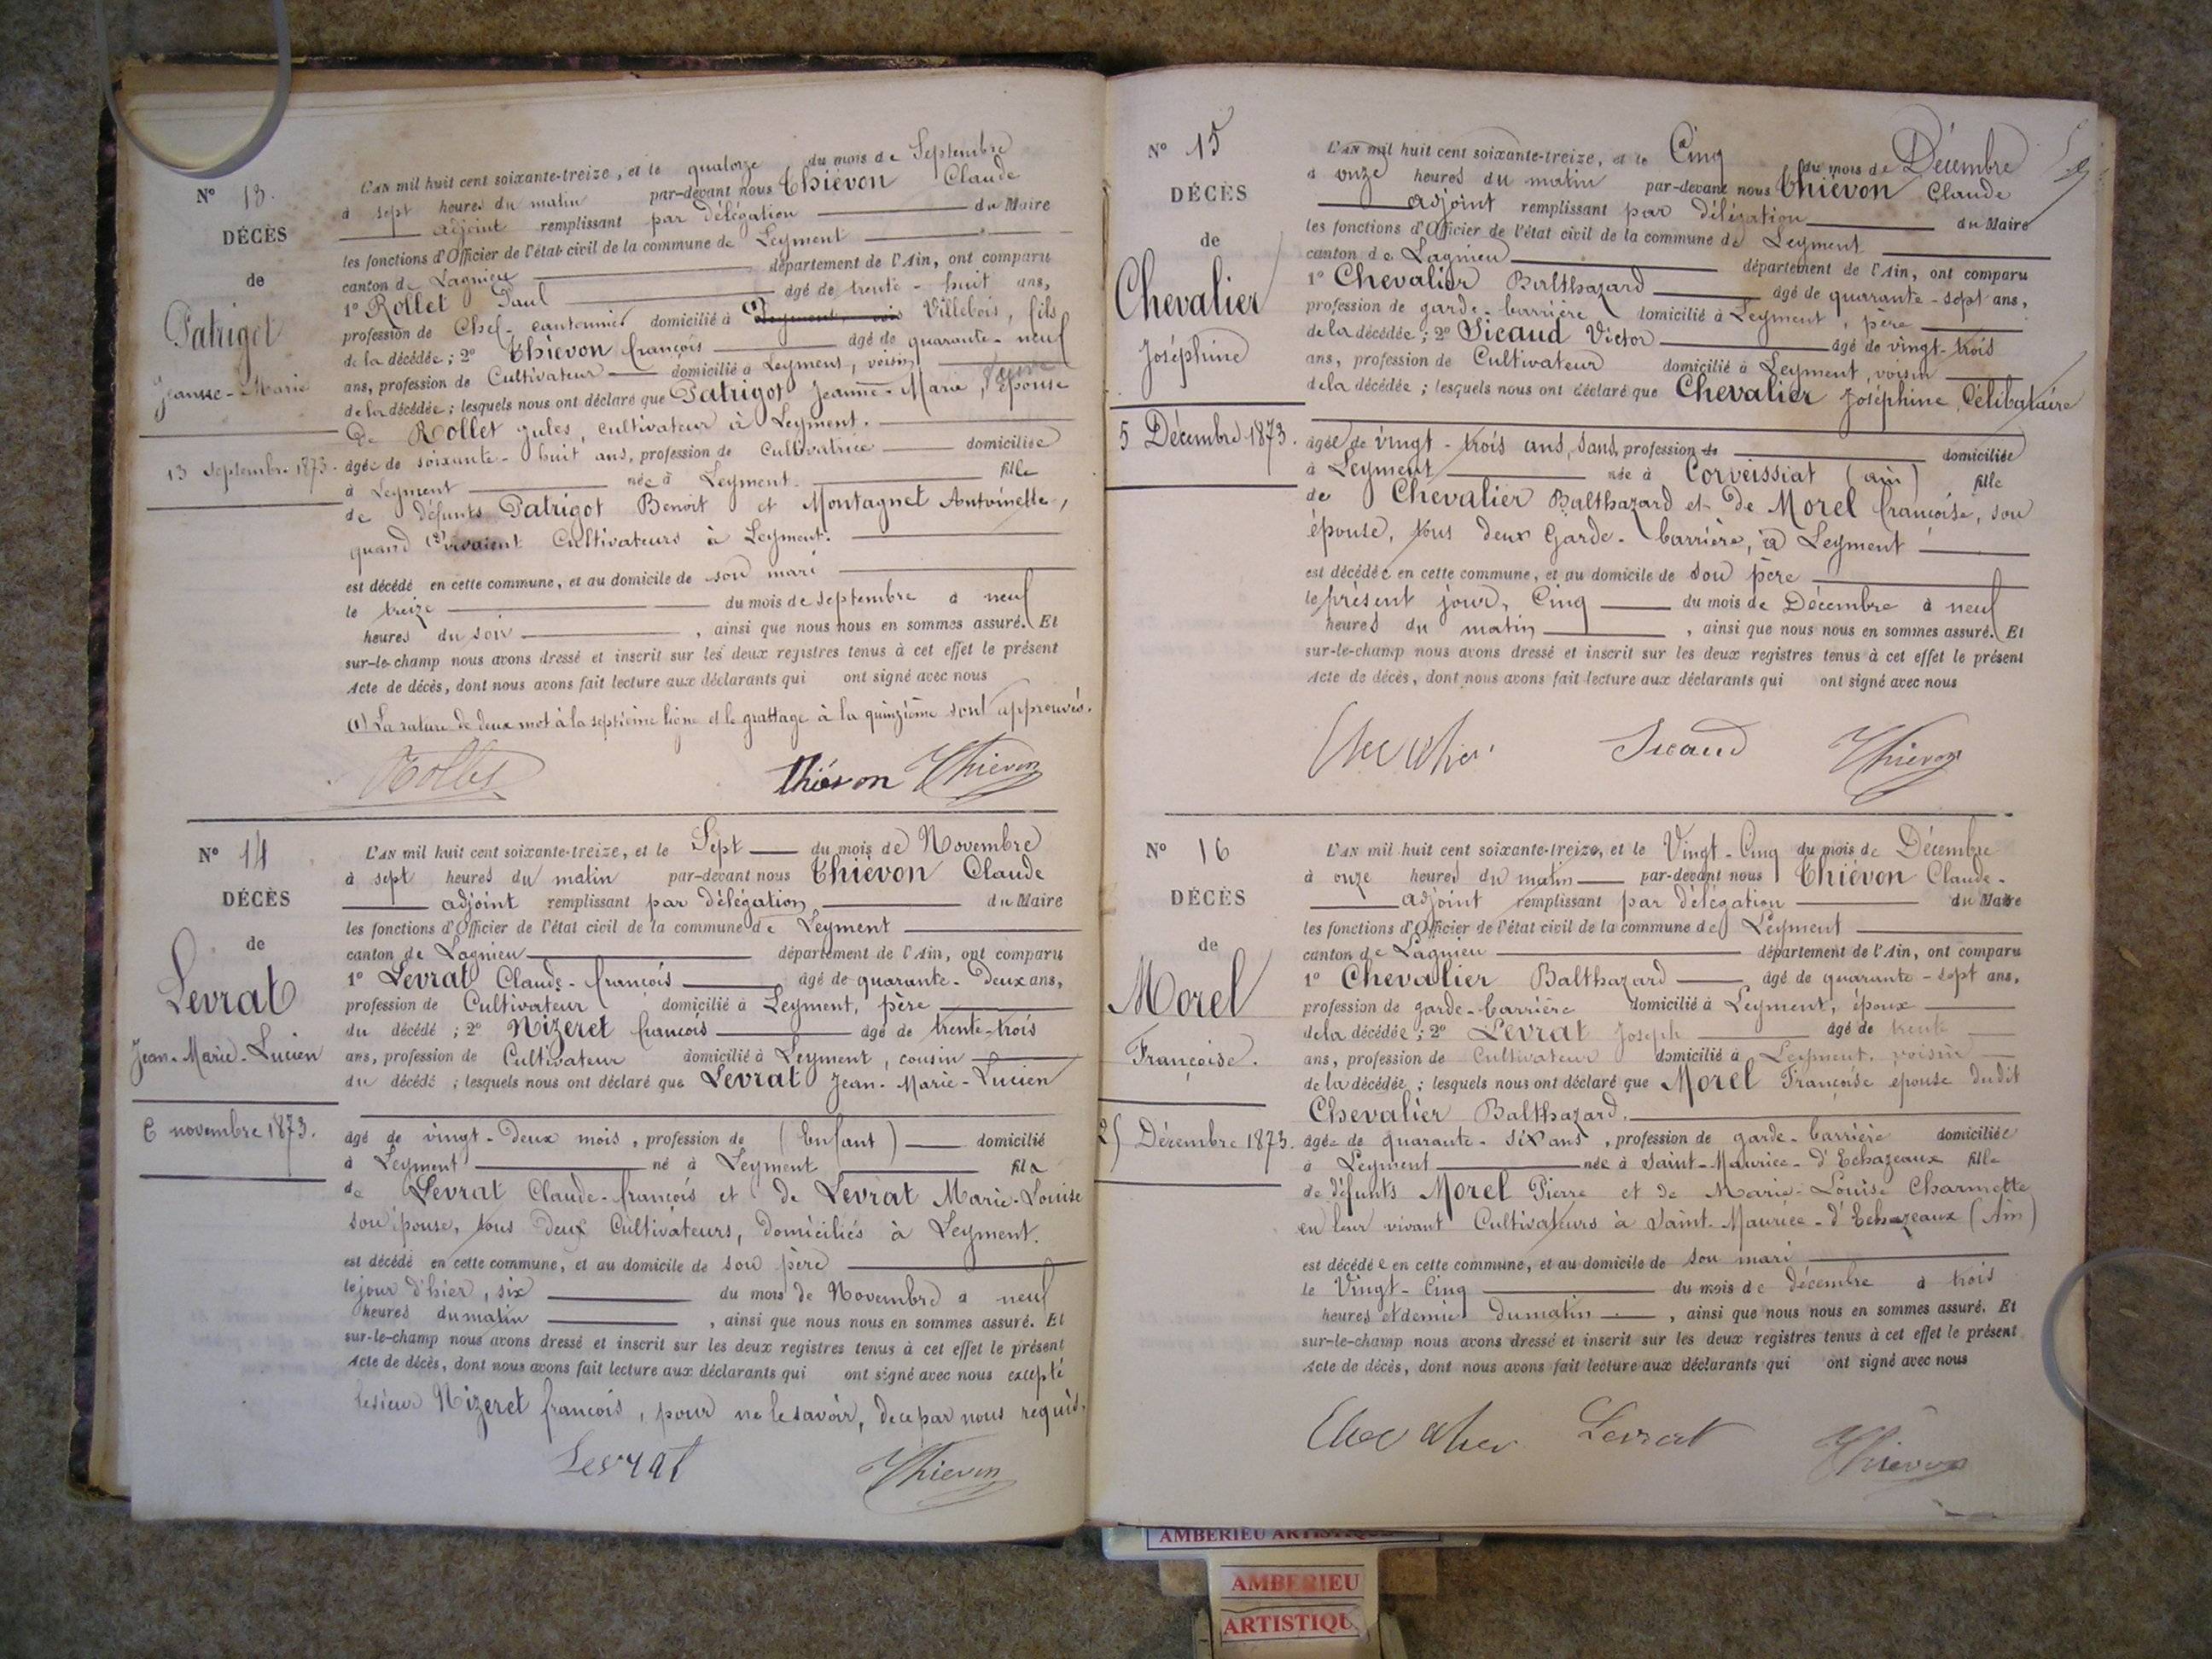 N° 13.
DÉCÈS
de
Patrigot
Jeanne-Marie
13 Septembre 1873.
L'AN mil huit cent soixante-treize, et le quatorze du mois de Septembre
à sept heures du matin par-devant nous Thiévon Claude
adjoint remplissant par délégation du Maire
les fonctions d'Officier de l'état civil de la commune de Leyment
canton de Lagnieu département de l'Ain, ont comparu
1° Rollet Paul âgé de trente-huit ans,
profession de Chef-cantonnier domicilié à (1) Leyment, Villebois, fils
de la décédée; 2° Thiévon françois âgé de quarante-neuf
ans, profession de Cultivateur domicilié à Leyment, voisin
de la décédée; lesquels nous ont déclaré que Patrigot Jeanne-Marie, Epouse
De Rollet Jules, cultivateur à Leyment.
âgée de soixante-huit ans, profession de Cultivatrice domiciliée
à Leyment née à Leyment. fille
de défunts Patrigot Benoit et Montagnet Antoinette,
quand vivaient Cultivateurs à Leyment.
est décédé en cette commune, et au domicile de son mari
le treize du mois de septembre à neuf
heures du soir, ainsi que nous nous en sommes assuré. Et
sur-le-champ nous avons dressé et inscrit sur les deux registres tenus à cet effet le présent
Acte de décès, dont nous avons fait lecture aux déclarants qui ont signé avec nous
(1) La rature de deux mot à la septième ligne et le grattage à la quinzième sont approuvés.
Thiévon Thievon
N° 14
DÉCÈS
de
Levrat
Jean-Marie-Lucien
6 novembre 1873.
L'AN mil huit cent soixante-treize, et le Sept du mois de Novembre
à sept heures du matin par-devant nous Thiévon Claude
adjoint remplissant par délégation du Maire
les fonctions d'Officier de l'état civil de la commune de Leyment
canton de Lagnieu département de l'Ain, ont comparu
1° Levrat Claude-françois âgé de quarante-Deux ans,
profession de Cultivateur domicilié à Leyment, père
du décédé; 2° Nizeret françois âgé de trente-trois
ans, profession de Cultivateur domicilié à Leyment, cousin
du décédé; lesquels nous ont déclaré que Levrat Jean-Marie-Lucien
âgé de vingt-Deux mois, profession de (Enfant) domicilié
à Leyment né à Leyment fils
de Levrat Claude-françois et de Levrat Marie-Louise
son épouse, tous deux Cultivateurs, domiciliés à Leyment.
est décédé en cette commune, et au domicile de son père
le jour d'hier, six du mois de Novembre à neuf
heures du matin, ainsi que nous nous en sommes assuré. Et
sur-le-champ nous avons dressé et inscrit sur les deux registres tenus à cet effet le présent
Acte de décès, dont nous avons fait lecture aux déclarants qui ont signé avec nous excepté
le sieur Nizeret françois, pour ne le savoir, de ce par nous requis.
Levrat Thievon
N° 15
DÉCÈS
de
Chevalier
Joséphine
5 Décembre 1873.
L'AN mil huit cent soixante-treize, et le Cinq du mois de Décembre
à onze heures du matin par-devant nous Thiévon Claude
adjoint remplissant par délégation du Maire
les fonctions d'Officier de l'état civil de la commune de Leyment
canton de Lagnieu département de l'Ain, ont comparu
1° Chevalier Balthazard âgé de quarante-sept ans,
profession de garde-barrière domicilié à Leyment, père
de la décédée; 2° Sicaud Victor âgé de vingt-trois
ans, profession de Cultivateur domicilié à Leyment, voisin
de la décédée; lesquels nous ont déclaré que Chevalier Joséphine, Célibataire
âgée de vingt-trois ans, sans profession de domiciliée
à Leyment née à Corveissiat (ain) fille
de Chevalier Balthazard et de Morel françoise, son
épouse, tous deux Garde-barrière, à Leyment
est décédée en cette commune, et au domicile de son père
le présent jour, Cinq du mois de Décembre à neuf
heures du matin, ainsi que nous nous en sommes assuré. Et
sur-le-champ nous avons dressé et inscrit sur les deux registres tenus à cet effet le présent
Acte de décès, dont nous avons fait lecture aux déclarants qui ont signé avec nous
Chevalier Sicaud Thievon
N° 16
DÉCÈS
de
Morel
Françoise.
25 Décembre 1873.
L'AN mil huit cent soixante-treize, et le Vingt-Cinq du mois de Décembre
à onze heures du matin par-devant nous Thiévon Claude-
adjoint remplissant par délégation du Maire
les fonctions d'Officier de l'état civil de la commune de Leyment
canton de Lagnieu département de l'Ain, ont comparu
1° Chevalier Balthazard âgé de quarante-sept ans,
profession de garde-barrière domicilié à Leyment, époux
de la décédée; 2° Levrat Joseph âgé de trente
ans, profession de Cultivateur domicilié à Leyment, voisin
de la décédée; lesquels nous ont déclaré que Morel Françoise épouse dudit
Chevalier Balthazard.
âgée de quarante-six ans, profession de garde-barrière domiciliée
à Leyment née à Saint-Maurice-d'Echazeaux fille
de défunts Morel Pierre et de Marie-Louise Charmette
en leur vivant Cultivateurs à Saint-Maurice-d'Echazeaux (Ain)
est décédée en cette commune, et au domicile de son mari
le Vingt-Cinq du mois de décembre à trois
heures et demie du matin, ainsi que nous nous en sommes assuré. Et
sur-le-champ nous avons dressé et inscrit sur les deux registres tenus à cet effet le présent
Acte de décès, dont nous avons fait lecture aux déclarants qui ont signé avec nous
Chevalier Levrat Thievon
AMBERIEU ARTISTIQUE
AMBERIEU
ARTISTIQU